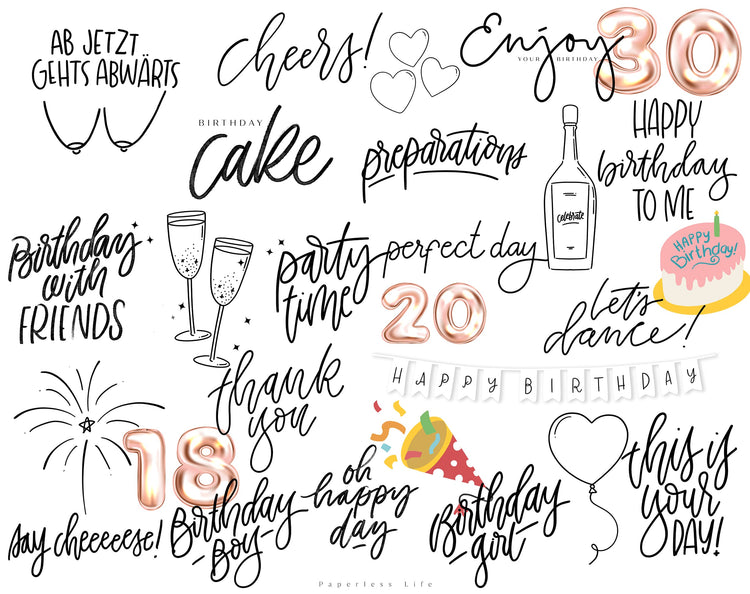 AB JETZT
GEHTS ABWÄRTS
cheers!
Enjoy
YOUR BIRTHDAY
30
BIRTHDAY
cake
preparations
HAPPY
birthday
TO ME
celebrate
Birthday
with
FRIENDS
party
time
perfect day
20
HAPPY
Birthday!
let's
dance!
thank
you
HAPPY BIRTHDAY
18
say cheeeeese!
Birthday
Boy
oh
happy
day
Birthday
girl
this is
your
DAY!
Paperless Life